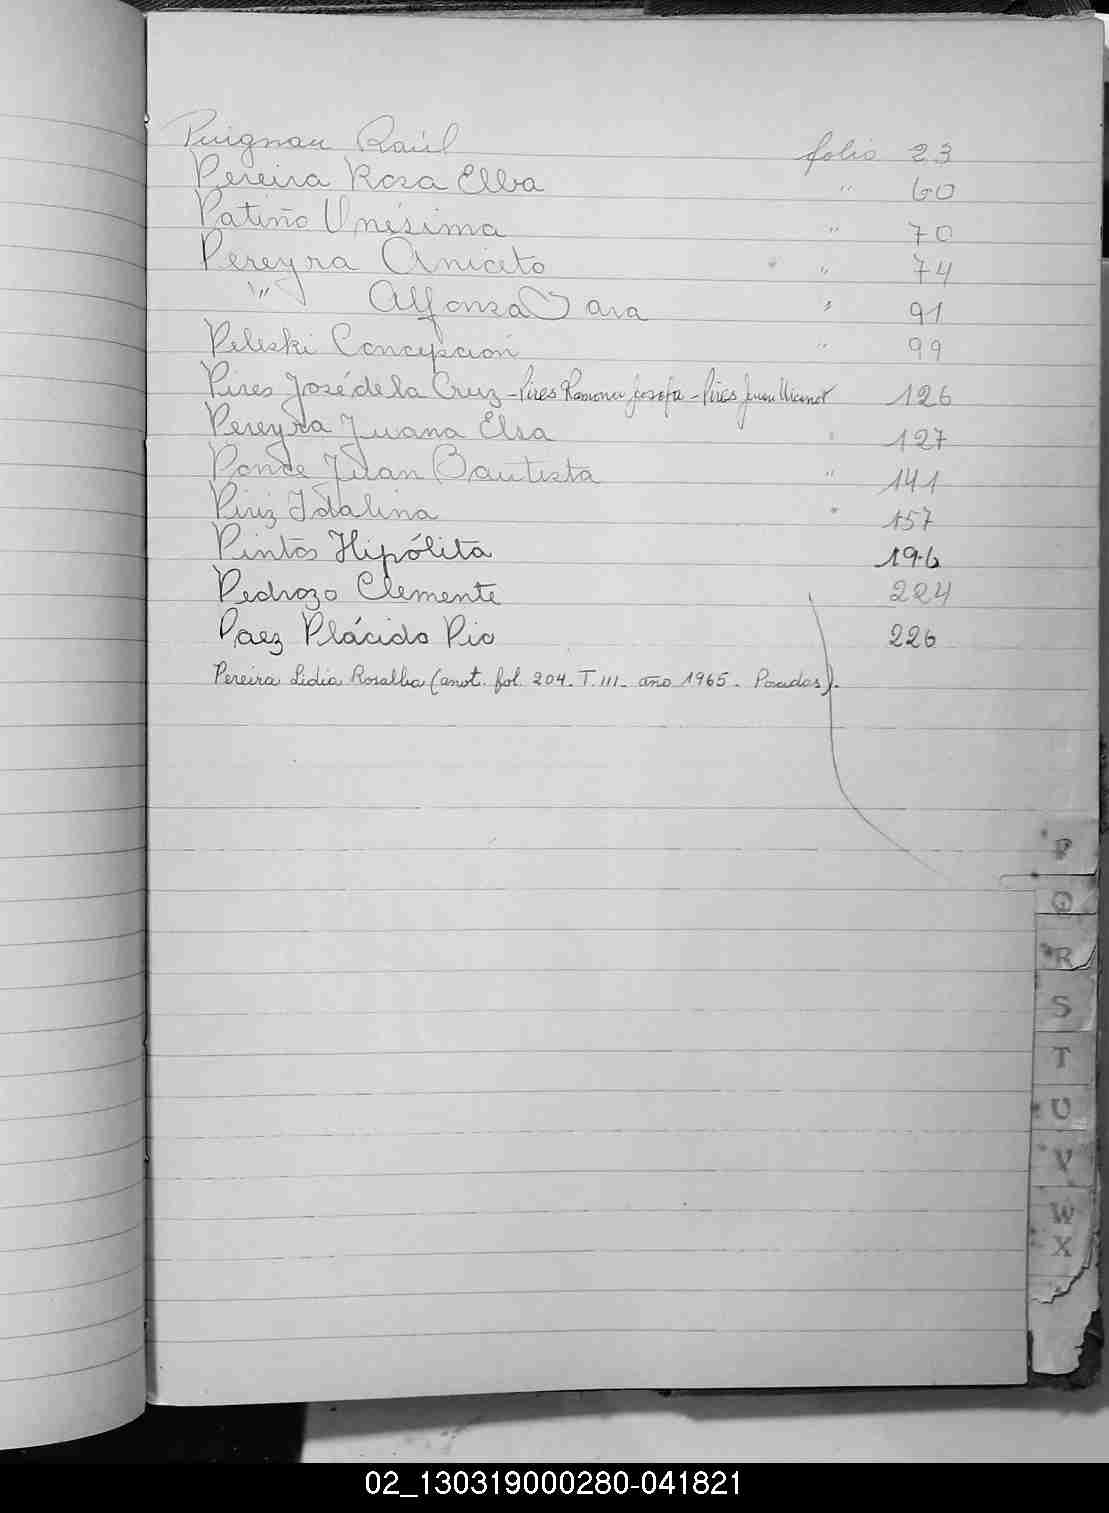 Puignau Raúl folio 23
Pereira Rosa Elba " 60
Patiño Unésima " 70
Pereyra Aniceto " 74
" Alfonza Sara " 91
Peleski Concepción " 99
Pires José de la Cruz - Pires Ramona Josefa - Pires Juan Vicente 126
Pereyra Juana Elsa " 127
Ponce Juan Bautista " 141
Piriz Idalina " 157
Pintos Hipólita 196
Pedrozo Clemente 224
Paez Plácido Pio 226
Pereira Lidia Rosalba (anot. fol. 204. T. III. año 1965. Posadas).
P
Q
R
S
T
U
V
W
X
02_130319000280-041821